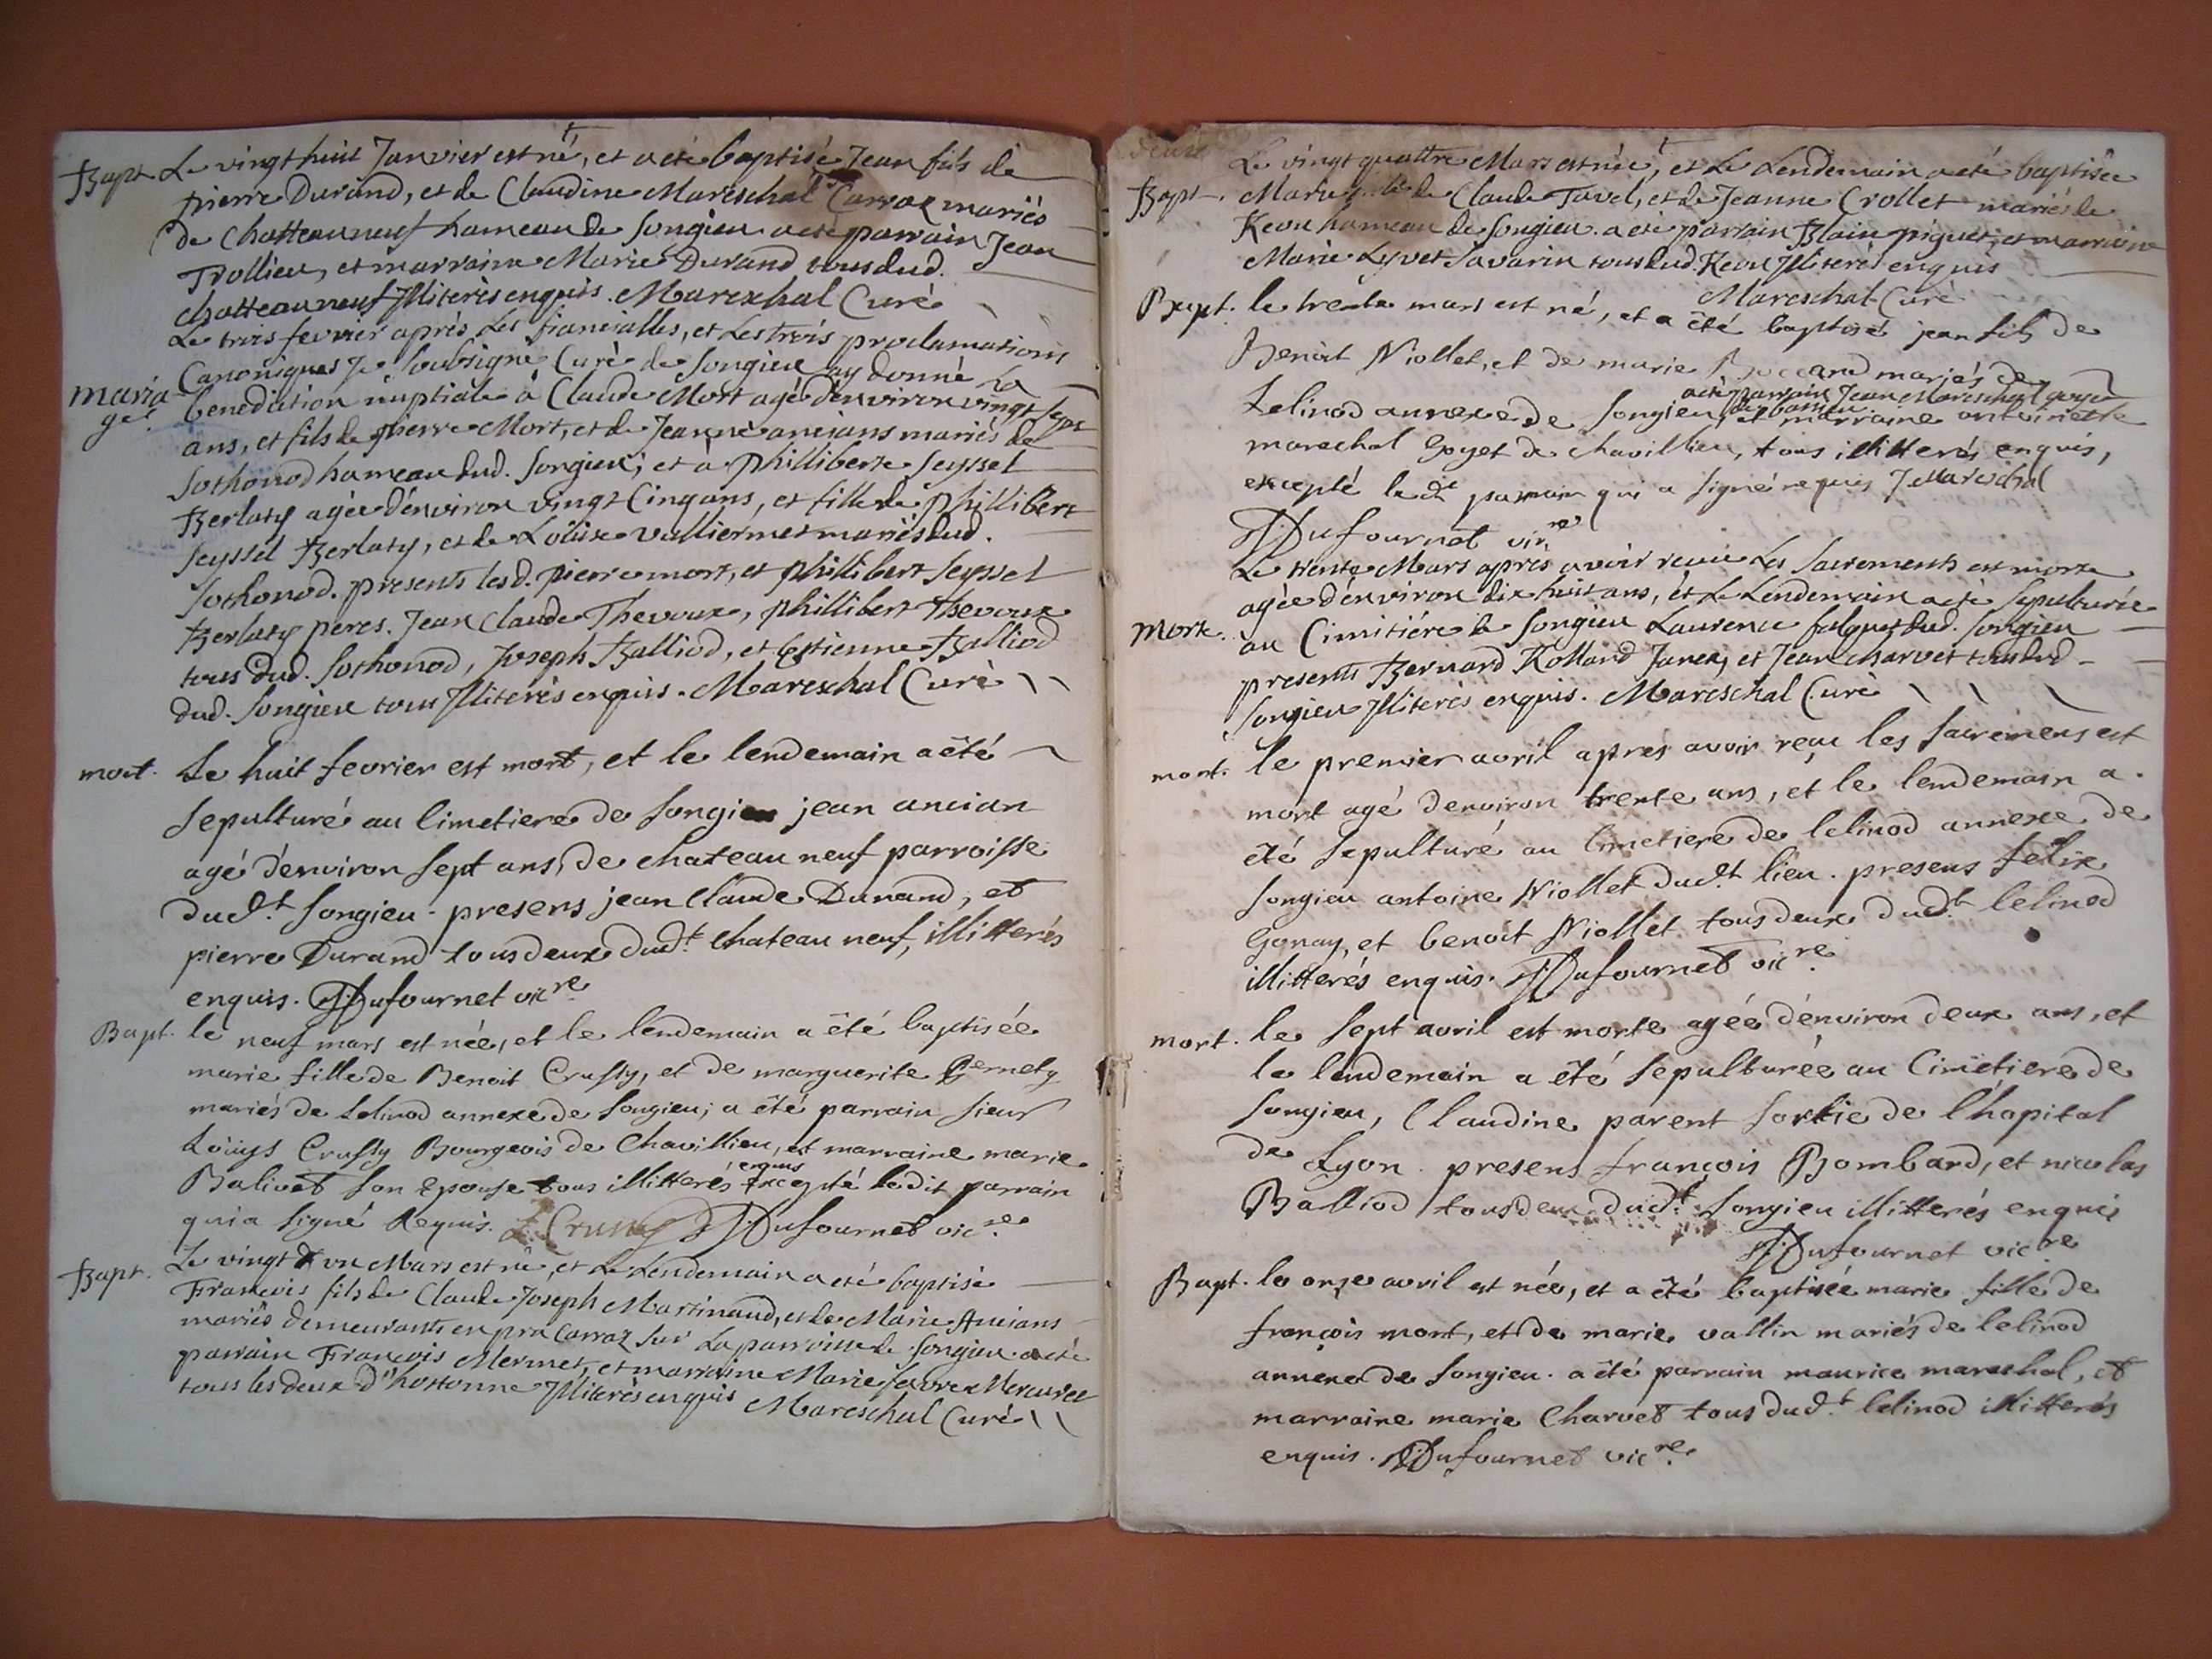 Bapt. Le vingt huit Janvier est né, et a eté baptisé Jean fils de
pierre Durand, et de Claudine Mareschal Carraz mariés
de Chatteauneuf hameau de Songieu a eté parrain Jean
Trollieu, et marraine Marie Durand tous dud.
chatteauneuf Illiterés enquis. Mareschal Curé
Le trois fevrier aprés Les fiancialles, et Les trois proclamations
Canoniques Je Soubsigné Curé de Songieu ay donné La
maria
ge. benediction nuptiale à Claude Mort agé d'environ vingt Sept
ans, et fils de pierre Mort, et de Jeanne ancians mariés de
Sothonod hameau dud. Songieu; et à Philliberte Seyssel
Berlaty agée d'environ vingt Cinq ans, et fille de Phillibert
Seyssel Berlaty, et de Loüise vulliermet mariés dud.
Sothonod. presents lesd. pierre mort, et phillibert Seyssel
Berlaty peres. Jean Claude Thevoux, phillibert thevoux
tous dud. Sothonod, Joseph Balliod, et Estienne Balliod
dud. Songieu tous Illiterés enquis. Mareschal Curé
mort. Le huit fevrier est mort, et le lendemain a été
Sepulturé au Cimetiere de Songieu jean ancian
agé d'environ Sept ans, de chateau neuf parroisse
dud.t Songieu. presens jean Claude Durand, et
pierre Durand tous deux dud.t Chateau neuf, illitterés
enquis. Dufournet vic.re
Bapt. le neuf mars est née, et le lendemain a été baptisée
marie fille de Benoit Crussy, et de marguerite Gernety
mariés de Lelinod annexe de Songieu; a été parrain Sieur
Loüys Crussy Bourgeois de Chavillieu, et marraine marie
Balivet Son epouse tous illitterés enquis excepté ledit parrain
qui a Signé Requis. L. Crussy Dufournet vic.re
Bapt. Le vingt un Mars est né, et Le Lendemain a eté baptisé
François fils de Claude Joseph Martinand, et de Marie Ancians
mariés demeurants en pra Carraz Sur La parroisse de Songieu. a eté
parrain François Mermet, et marraine Marie favre Mercuret
tous les deux d'hostonne Illiterés enquis Mareschal Curé
deux
Le vingt quattre Mars est née, et Le Lendemain a eté baptisée
Bapt. Marie fille de Claude Tavel, et de Jeanne Crollet mariés de
Keou hameau de Songieu. a eté parrain Blain piguet, et marraine
Marie Lyvet Savarin tous dud. Keou Illiterés enquis
Mareschal Curé
Bapt. le trente mars est né, et a été baptisé jean fils de
Benoit Niollet, et de marie mariés de
Lelinod annexe de Songieu, a eté parrain Jean Mareschal goyet
et marraine antoinette
marechal Goyet de chavillieu, tous illitterés enquis,
excepté led.t parrain qui a Signé requis J Mareschal
Dufournet vic.re
Le trente Mars aprés avoir receu Les Sacrements est morte
agée d'environ dix huit ans, et Le Lendemain a eté Sepulturée
Morte. au Cimitiére de Songieu Laurence fulquet dud. Songieu
presents Bernard Rolland Janex, et Jean charvet tous dud.
Songieu Illiterés enquis. Mareschal Curé
mort. le premier avril aprés avoir reçu les Sacremens est
mort agé d'environ trente ans, et le lendemain a
été Sepulturé au Cimetiere de lelinod annexe de
Songieu antoine Niollet dud.t lieu. presens felix
Gonay, et benoit Niollet tous deux dud.t lelinod
illitterés enquis. Dufournet vic.re
mort. le Sept avril est morte agée d'environ deux ans, et
le lendemain a été Sepulturée au Cimetiere de
Songieu, Claudine parent Sortie de l'hopital
de Lyon. presens françois Bombard, et nicolas
Balliod tous deux dud.t Songieu illitterés enquis
Dufournet vic.re
Bapt. le onze avril est née, et a été baptisée marie fille de
françois mort, et de marie vallin mariés de lelinod
annexe de Songieu. a été parrain maurice marechal, et
marraine marie Charvet tous dud.t lelinod illitterés
enquis. Dufournet vic.re